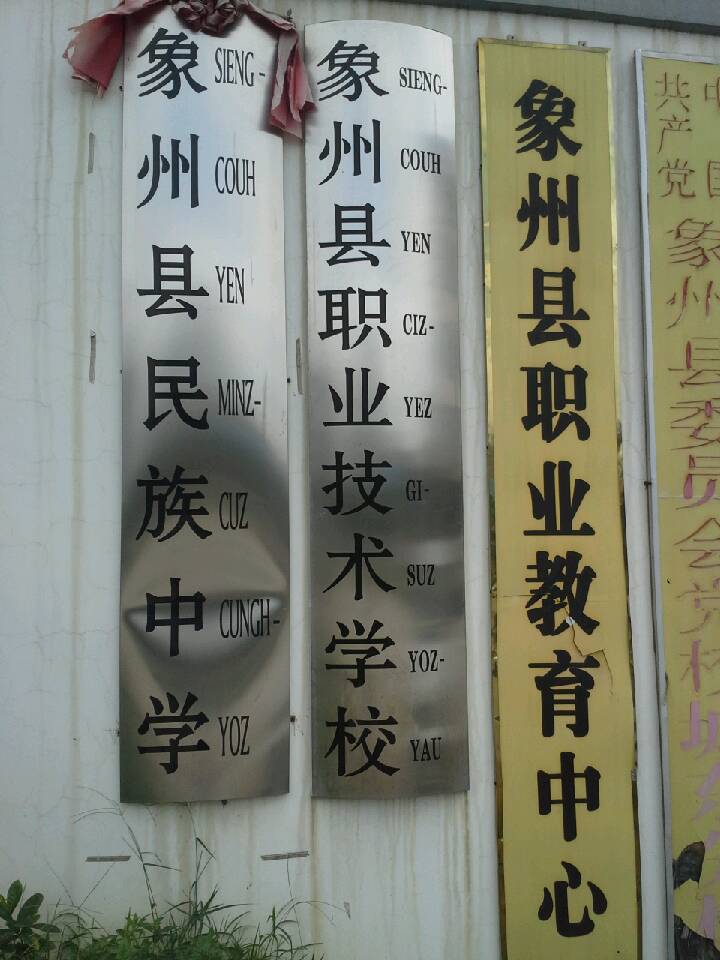 象州县民族中学
SIENG-COUH YEN MINZ-CUZ CUNGH-YOZ
象州县职业技术学校
SIENG-COUH YEN CIZ-YEZ GI-SUZ YOZ-YAU
象州县职业教育中心
中国
共产党
象州县委员会党校